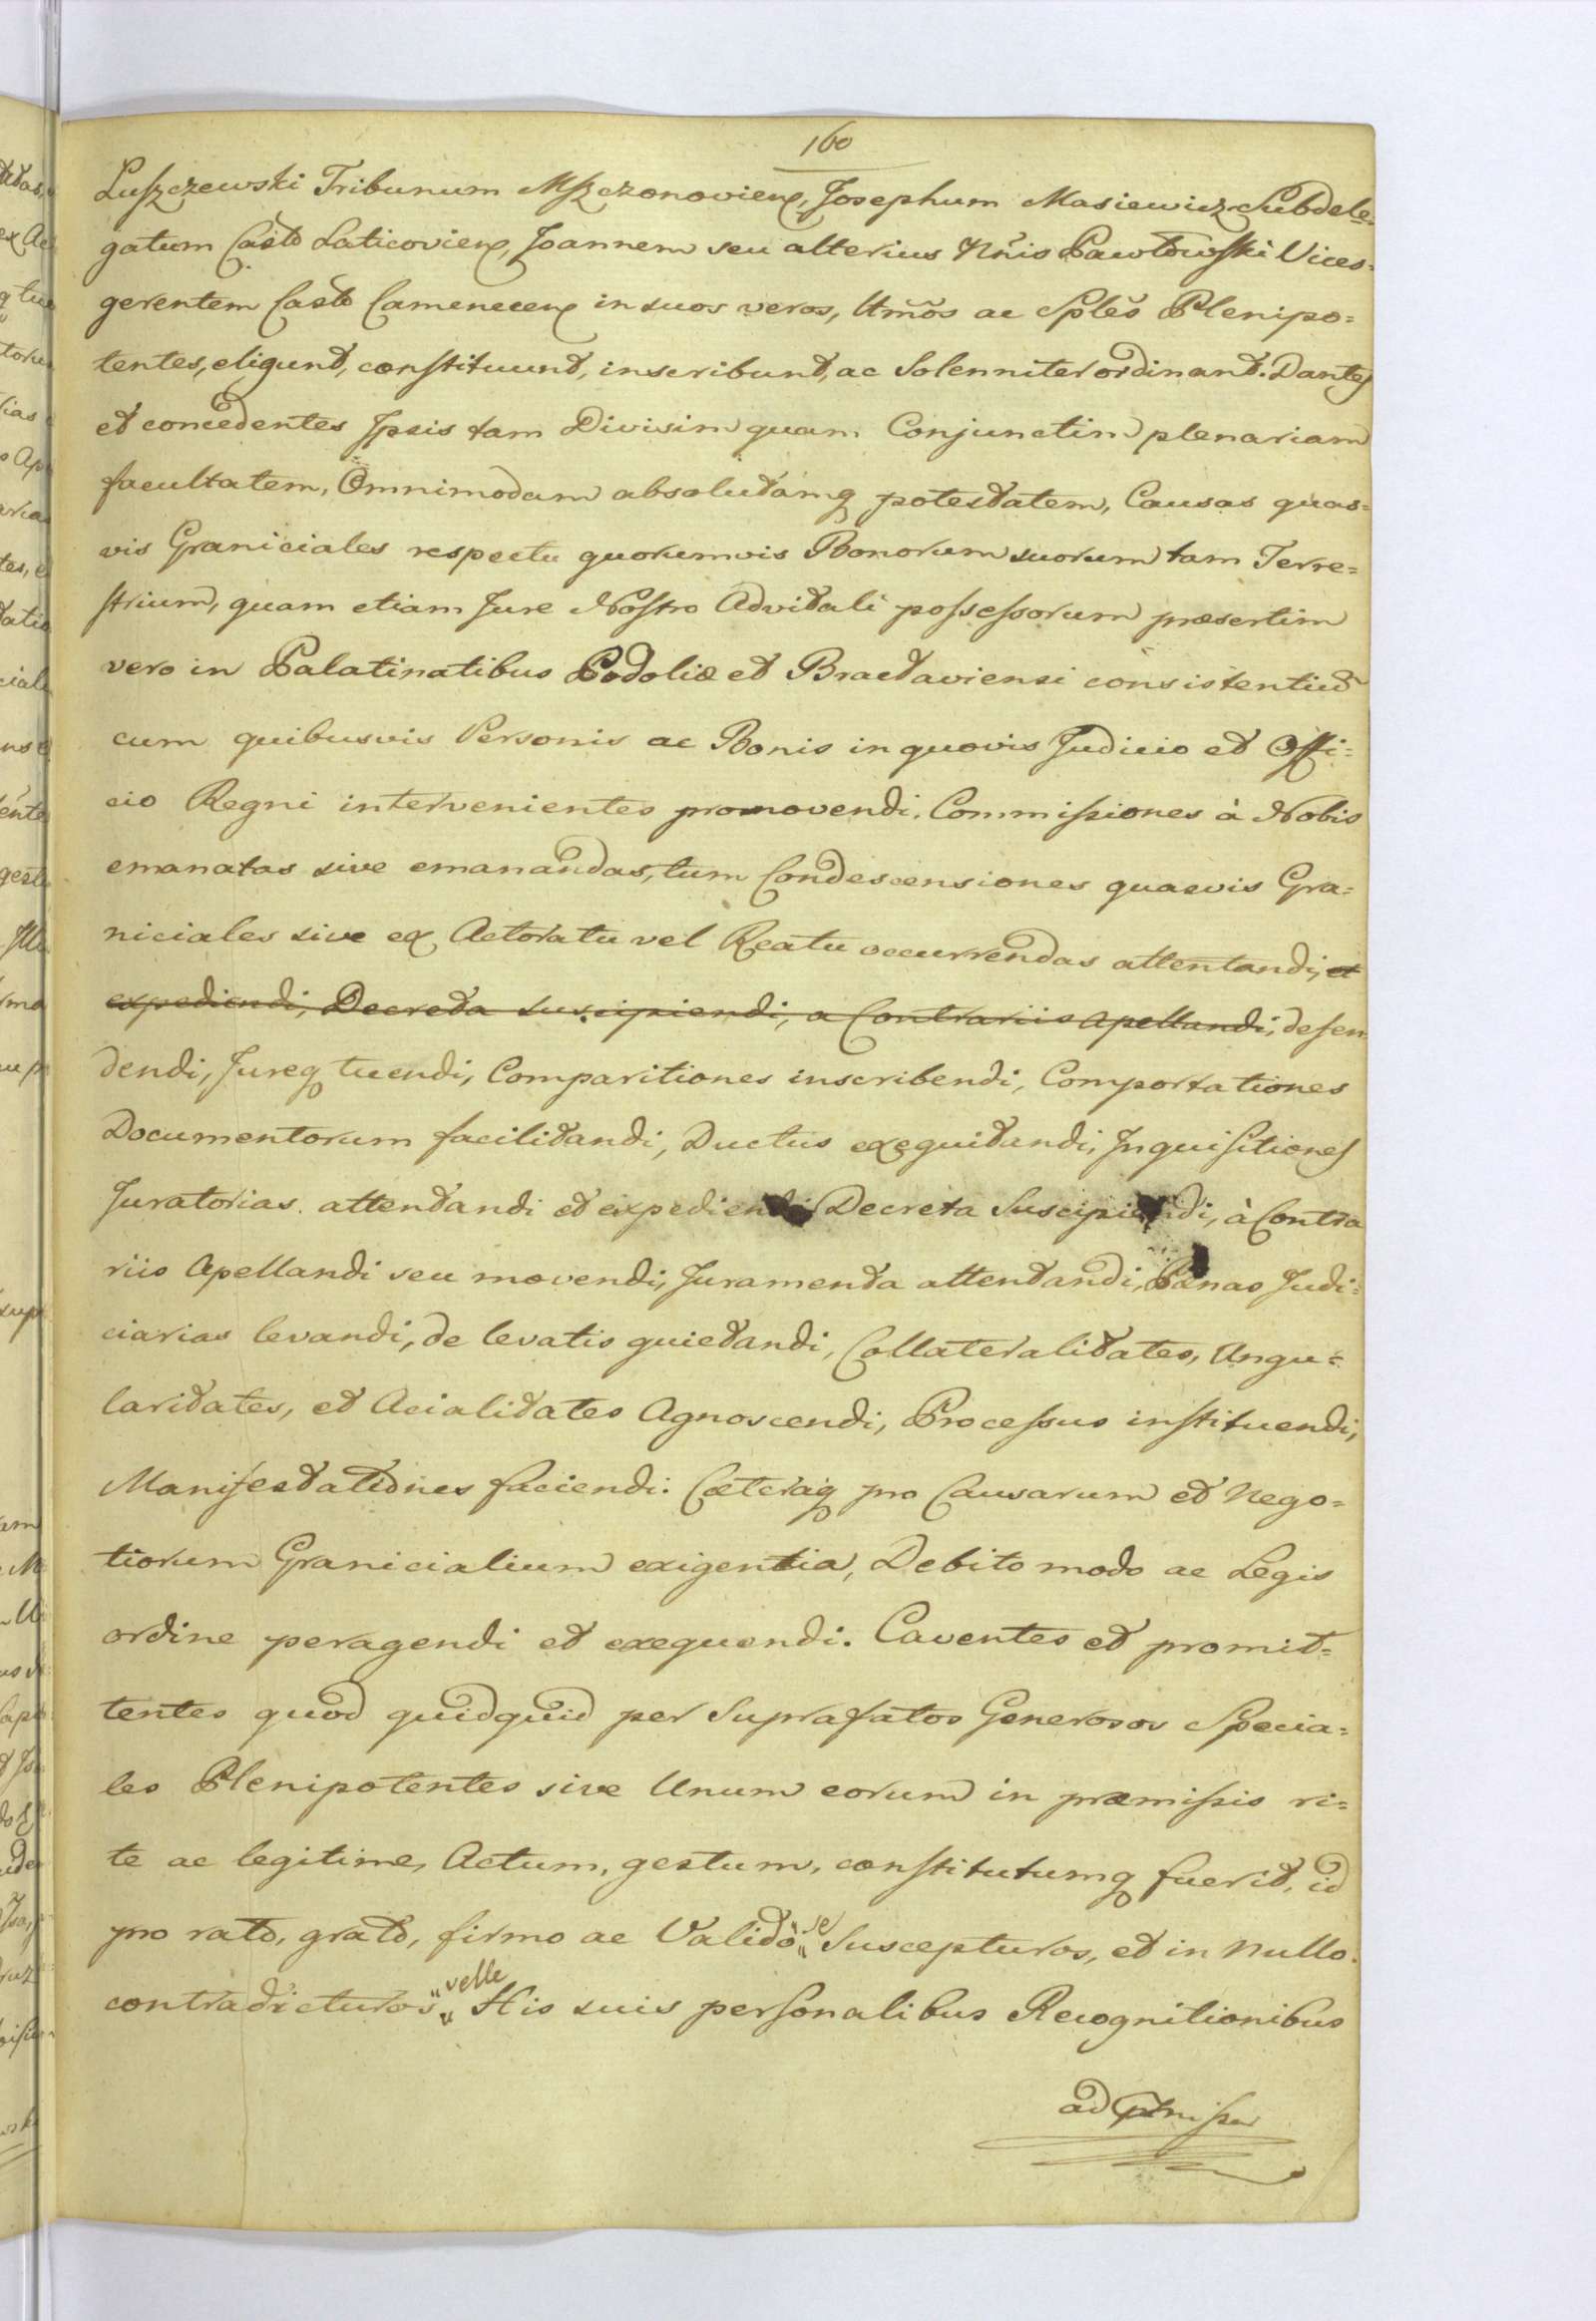 160
Luszczewski Tribunum Mszczonoviens, Josephum Masiewicz Subdele-
gatum Castr Laticoviens, Joannem seu alterius Nñis Pawłowski Vices-
gerentem Castr Camenecens in suos veros, Ltmõs ac Splẽs Plenipo=
tentes, eligunt, constituunt, inscribunt, ac Solenniter ordinant. Dantes
et concedentes Ipsis tam Divisim quam Conjunctim plenariam
facultatem, Omnimodam absolutamq potestatem, Causas quas=
vis Graniciales respectu quorumvis Bonorum suorum tam Terre=
strium, quam etiam Jure Nostro Advitali possessorum præsertim
vero in Palatinatibus Podoliæ et Bractaviensi consistentiũ
cum quibusvis Personis ac Bonis in quovis Judicio et Offi=
cio Regni intervenientes promovendi, Commissiones à Nobis
emanatas sive emanandas, tum Condescensiones quasvis Gra=
niciales sive ex Actoratu vel Reatu occurrendas attentandi, et
expediendi, Decreta suscipiendi, a Contrariis apellandi, defen
dendi, Jureq tuendi, Comparitiones inscribendi, Comportationes
Documentorum facilitandi, Ductus exequitandi, Inquisitiones
Juratorias attentandi et expediendi Decreta Suscipiendi, à Contra
riis Apellandi seu movendi, Juramenta attentandi, Pænas Judi=
ciarias levandi, de levatis quietandi, Collateralitates, Angu=
laritates, et Acialitates Agnoscendi, Processus instituendi,
Manifestationes faciendi. Cæteraq pro Causarum et Nego=
tiorum Granicialium exigentia, Debito modo ac Legis
ordine peragendi et exequendi. Caventes et promit=
tentes quod quidquid per Suprafatos Generosos Specia=
les Plenipotentes sive Unum eorum in præmissis ri=
te ac legitime, Actum, gestum, constitutumq fuerit, id
pro rato, grato, firmo ac Valido se Suscepturos, et in nullo
contradicturos velle His suis personalibus Recognitionibus
ad